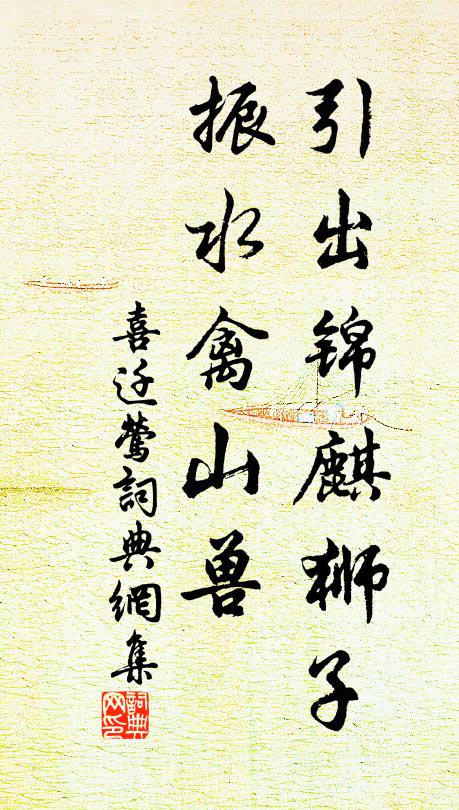 引出锦麒狮子
振水禽山兽
喜迁莺詞典網集
詞典网印